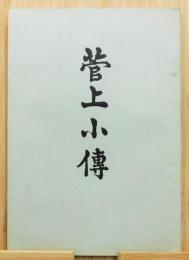 菅上小傳